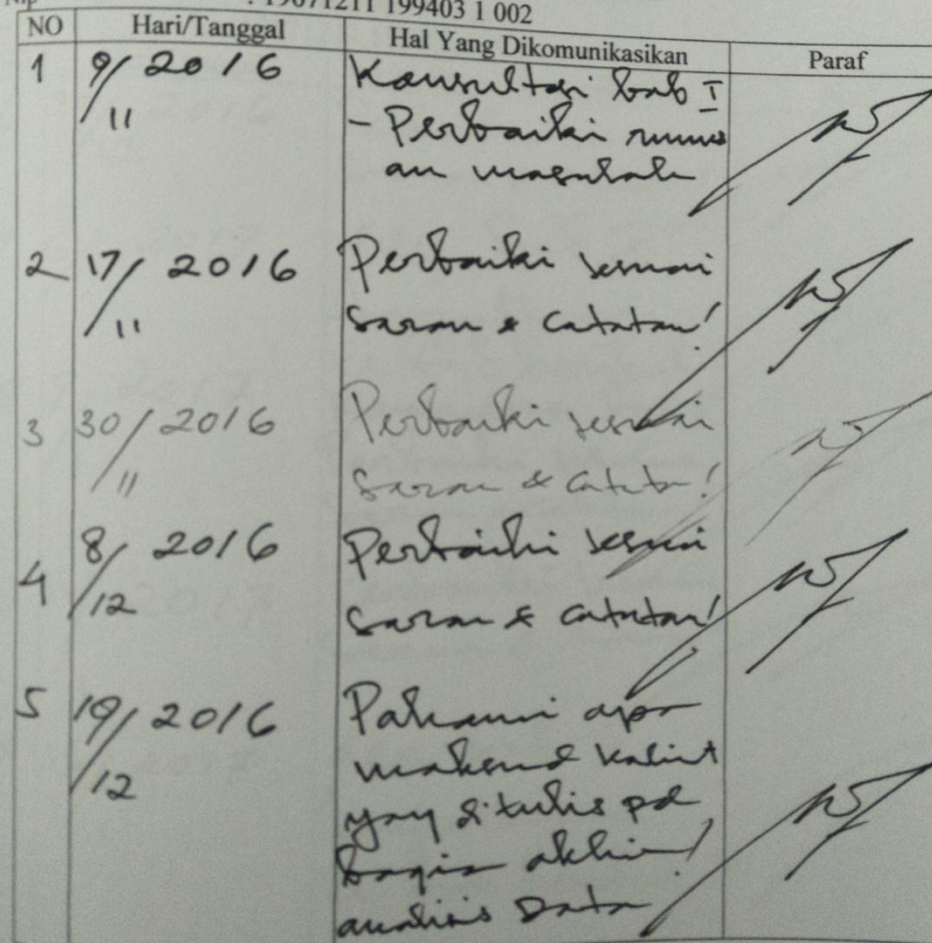 Nip : 19671211 199403 1 002
NO Hari/Tanggal Hal Yang Dikomunikasikan Paraf
1 9/11 2016 Konsultasi bab I
- Perbaiki rumus
an masalah
2 17/11 2016 Perbaiki sesuai
saran & catatan!
3 30/11 2016 Perbaiki sesuai
saran & catatan!
4 8/12 2016 Perbaiki sesuai
saran & catatan!
5 19/12 2016 Pahami apa
maksud kalimt
yang ditulis pd
bagian akhir!
analisis Data